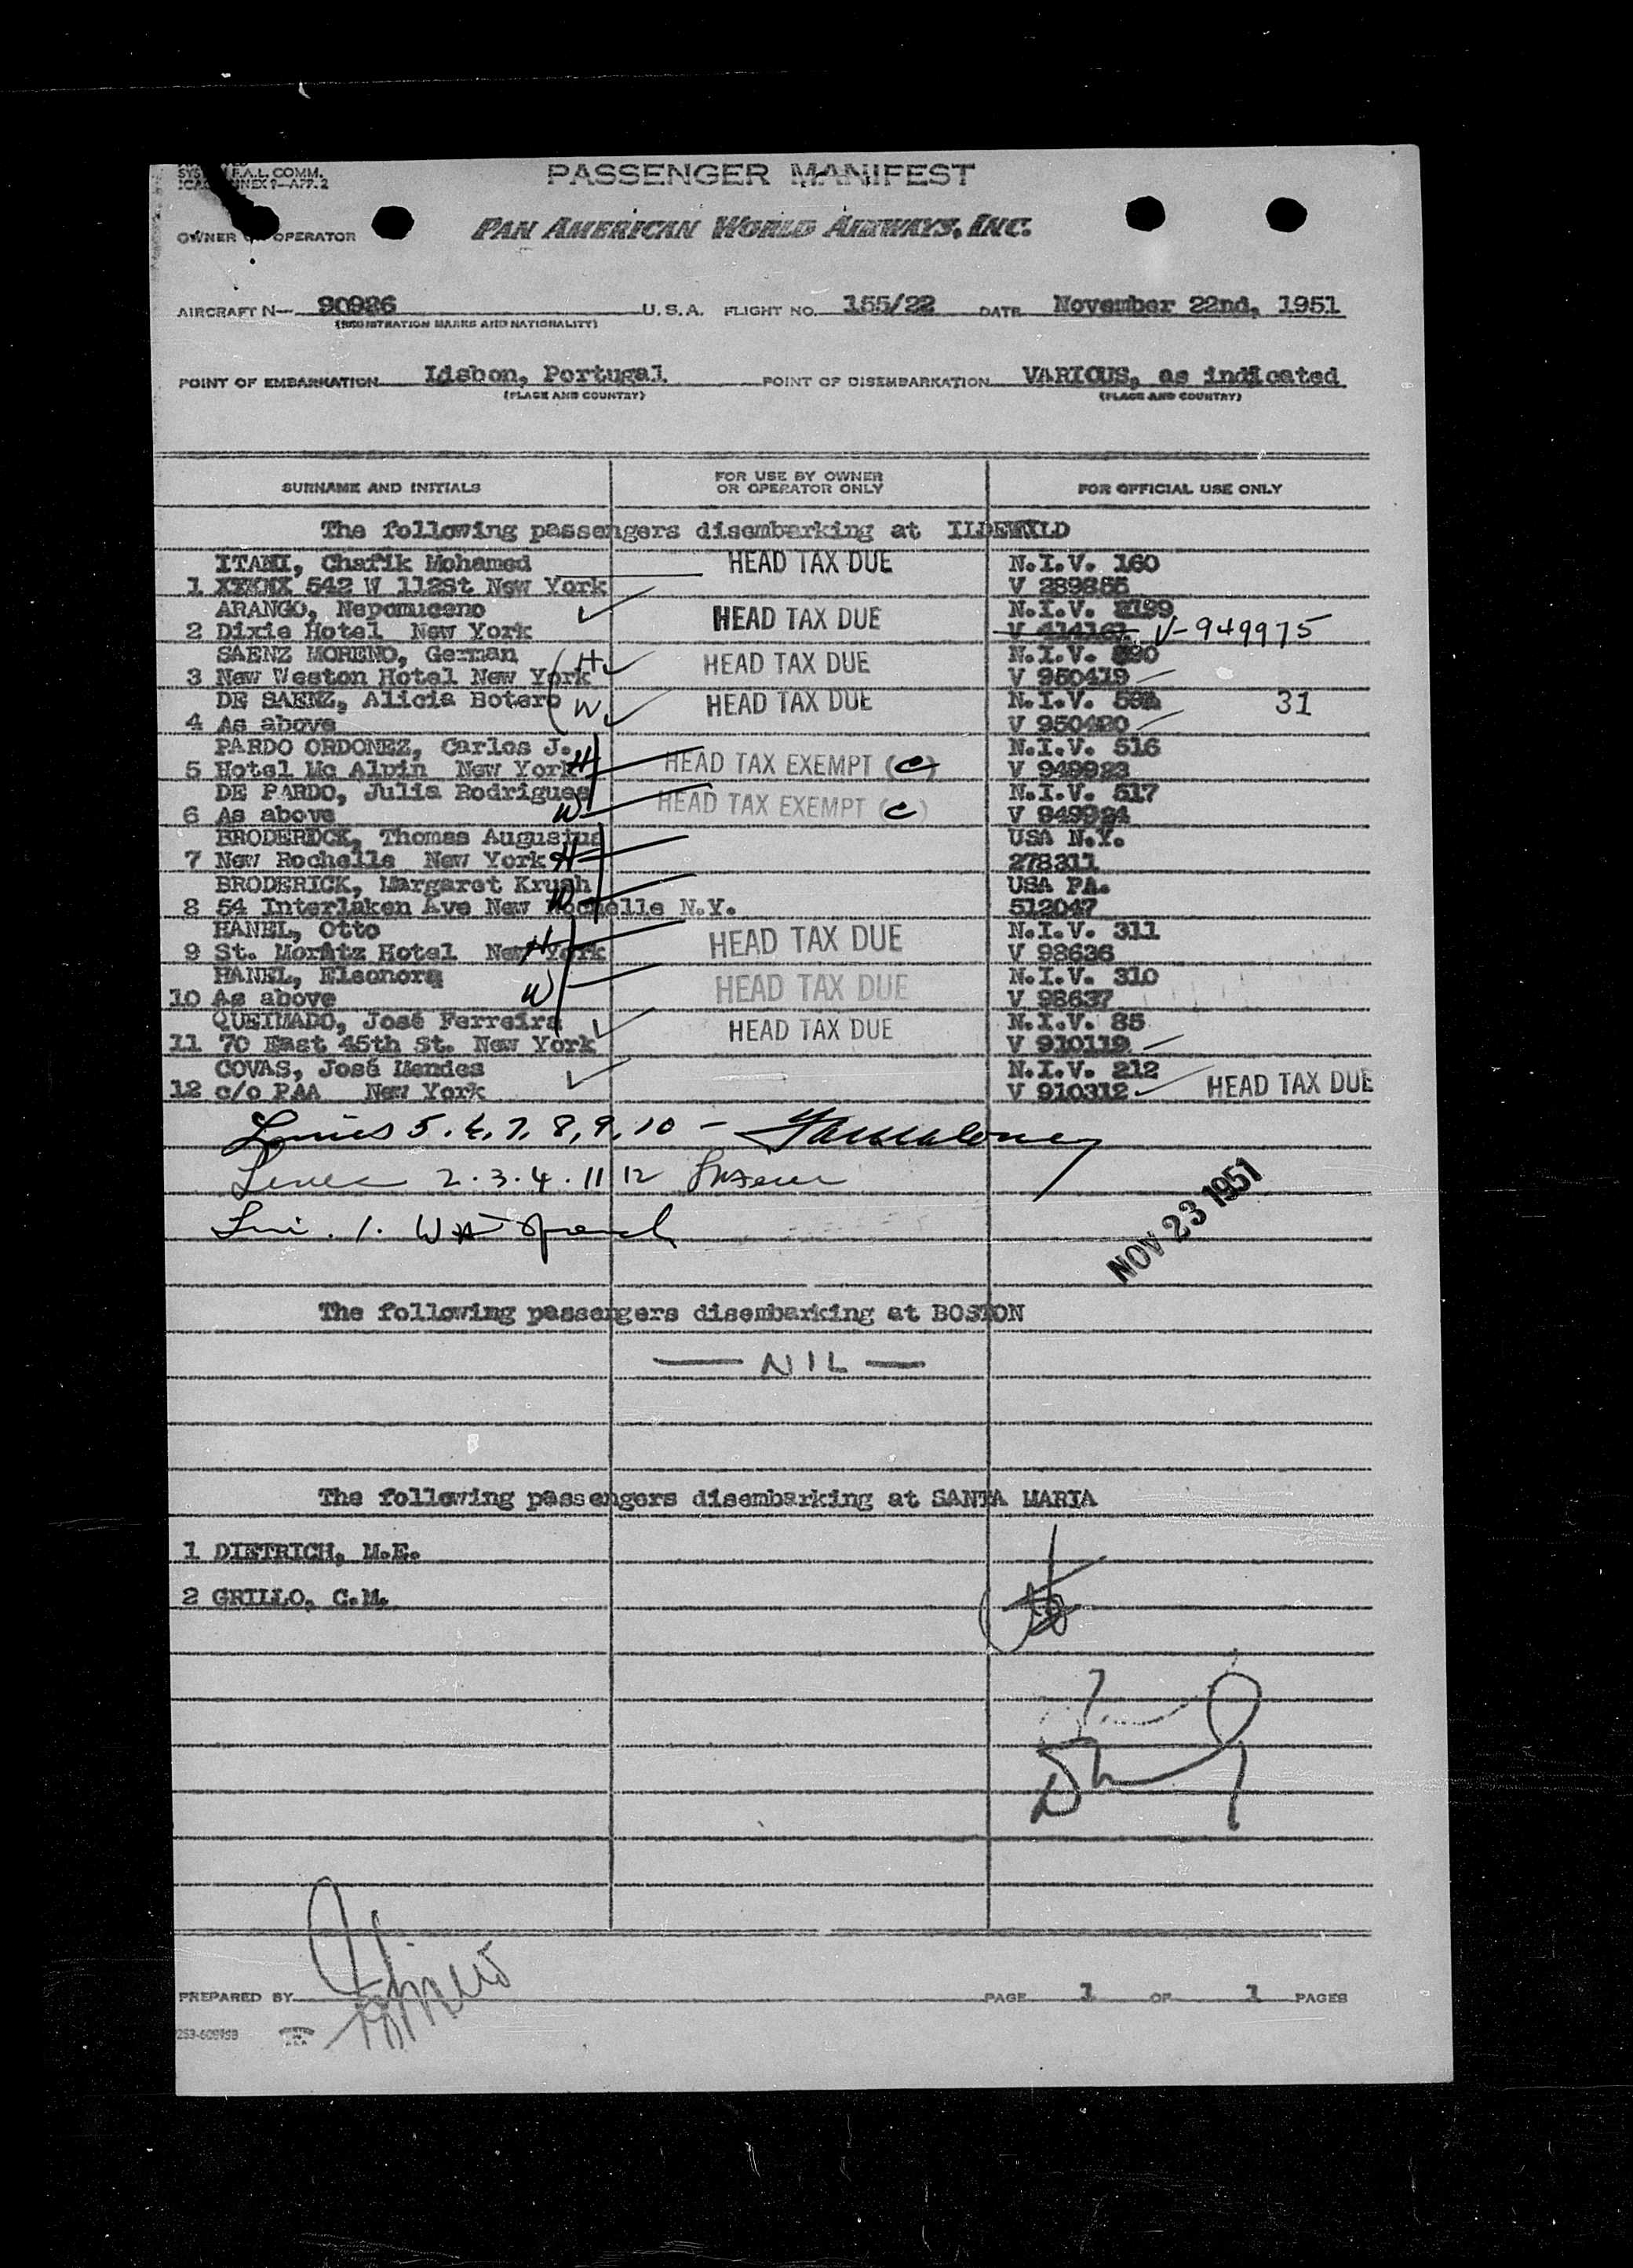 F.A.L. COMM.
PASSENGER MANIFEST
OWNER OPERATOR PAN AMERICAN WORLD AIRWAYS, INC.
AIRCRAFT N— 90926 U.S.A. FLIGHT NO. 155/22 DATE November 22nd, 1951
(REGISTRATION MARKS AND NATIONALITY)
POINT OF EMBARKATION Lisbon, Portugal POINT OF DISEMBARKATION VARIOUS, as indicated
(PLACE AND COUNTRY) (PLACE AND COUNTRY)
SURNAME AND INITIALS FOR USE BY OWNER OR OPERATOR ONLY FOR OFFICIAL USE ONLY
The following passengers disembarking at ILDEWILD
ITANI, Chafik Mohamed HEAD TAX DUE N.I.V. 160
1 542 W 112St New York V 289855
ARANGO, Nepomuceno HEAD TAX DUE N.I.V.
2 Dixie Hotel New York V-949975
SAENZ MORENO, German H HEAD TAX DUE N.I.V.
3 New Weston Hotel New York V 950419
DE SAENZ, Alicia Botero W HEAD TAX DUE N.I.V. 31
4 As above V 950420
PARDO ORDONEZ, Carlos J. N.I.V. 516
5 Hotel Mc Alpin New York H HEAD TAX EXEMPT (C) V 949923
DE PARDO, Julia Rodrigues HEAD TAX EXEMPT (C) N.I.V. 517
6 As above W V 949924
BRODERICK, Thomas Augustus USA N.Y.
7 New Rochelle New York H 278311
BRODERICK, Margaret Krush USA PA.
8 54 Interlaken Ave New Rochelle N.Y. W 512047
HANEL, Otto HEAD TAX DUE N.I.V. 311
9 St. Moritz Hotel New York H V 98636
HANEL, Eleonora HEAD TAX DUE N.I.V. 310
10 As above W V 98637
QUEIMADO, José Ferreira HEAD TAX DUE N.I.V. 85
11 70 East 45th St. New York V 910119
COVAS, José Mendes N.I.V. 212
12 c/o PAA New York V 910312 HEAD TAX DUE
Lines 5.6,7,8,9,10 –
Lines 2.3.4.11 12
NOV 23 1951
The following passengers disembarking at BOSTON
— NIL —
The following passengers disembarking at SANTA MARIA
1 DIETRICH, M.E.
2 GRILLO, C.M.
PREPARED BY PAGE 1 OF 1 PAGES